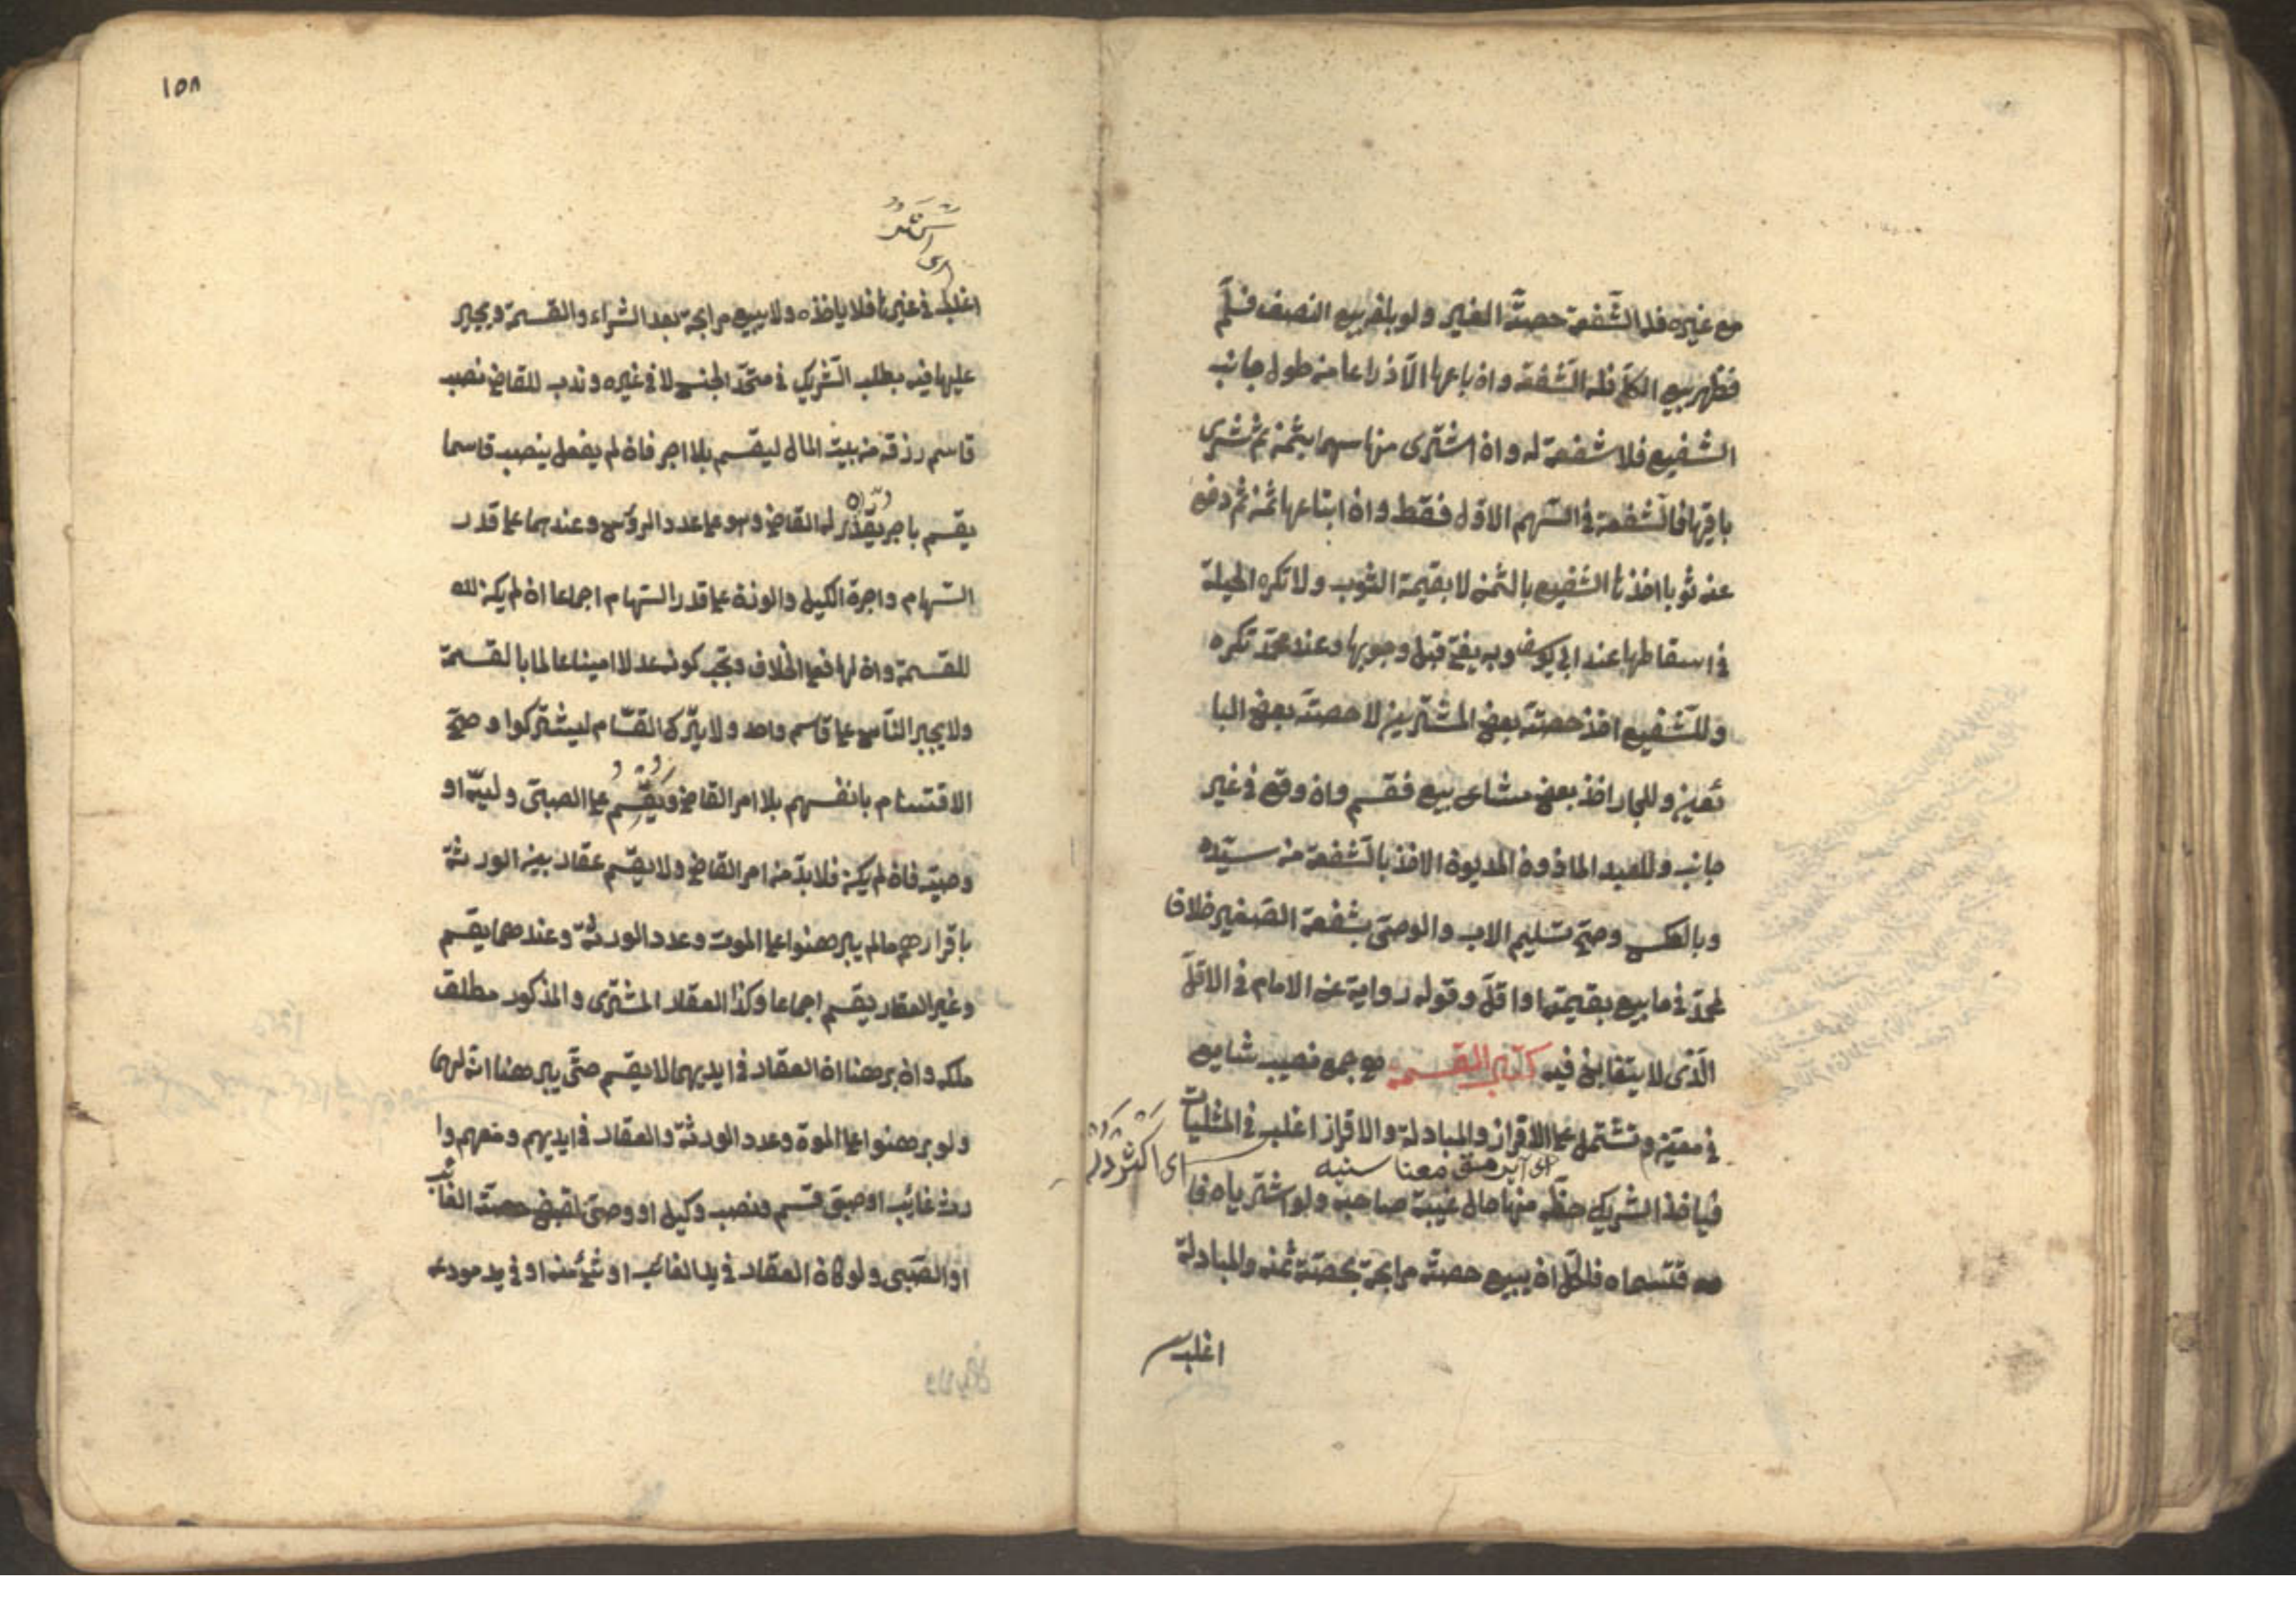 مع غيره فله الشّفعة حصّة الغير ولو بلغه بيع النصف فسلّم
فظهر بيع الكلّ فله الشّفعة وان باعها الّا ذراعا من طول جانب
الشفيع فلا شفعة له وان اشترى منها سهما بثمن ثم شرى
باقيها فالشّفعة فى السّهم الاوّل فقط وان ابتاعها بثمن ثم دفع
عنه ثوبا اخذها الشفيع بالثمن لا بقيمة الثوب ولا تكره الحيلة
فى اسقاطها عند ابى يوسف وبه يفتى قبل وجوبها وعند محمّد تكره
وللشّفيع اخذ حصّة بعض المشتريين لا حصّة بعض البا
ئعين وللجار اخذ بعض مشاع بيع فقسم وان وقع فى غير
جانبه وللعبد الماذون المديون الاخذ بالشّفعة من سيّده
وبالعكس وصحّ تسليم الاب والوصىّ شفعة الصّغير خلافا
لمحمّد فى ما بيع بقيمته او اقلّ وقوله رواية عن الامام فى الاقلّ
الّذى لا يتغابن فيه كتاب القسمة هو جمع نصيب شايع
فى معيّن وتشتمل على الاقراز والمبادلة والاقراز اغلب فى المثليات
اى اكثر در
معنا سنه
فياخذ الشريك حظّه منها حال غيبة صاحبه ولو اشترياه فا
قتسماه فلكلّ ان يبيع حصته مرابحة بحصّة ثمنه والمبادلة
اغلب
١٥٨
اى
اغلب فى غيرها فلا ياخذه ولا يبيع مرابحة بعد الشراء والقسمة ويجبر
عليها فيه بطلب الشّريك فى متّحد الجنس لا فى غيره وندب للقاضى نصب
قاسم رزقه من بيت المال ليقسم بلا اجر فان لم يفعل ينصب قاسما
يقسم باجر يقدّره له القاضى وهو على عدد الرؤس وعندهما على قدر
السّهام واجرة الكيل والوزن على قدر السّهام اجماعا ان لم يكن لله
للقسمة وان لها فعلى الخلاف ويجب كونه عدلا امينا عالما بالقسمة
ولا يجبر النّاس على قاسم واحد ولا يترك القسّام ليشتركوا وصحّ
الاقتسام بانفسهم بلا امر القاضى ويقسم على الصبىّ وليّه او
وصيّه فان لم يكن فلا بدّ من امر القاضى ولا يقسم عقار بين الورثة
باقرارهم مالم يبرهنوا على الموت وعدد الورثة وعندهما يقسم
وغير العقار يقسم اجماعا وكذا العقار المشترى والمذكور مطلق
ملكه وان برهنا ان العقار فى ايديهما لا يقسم حتّى يبرهنا انّه لهما
ولو برهنوا على الموت وعدد الورثة والعقار فى ايديهم ومعهم وا
رث غائب او صبىّ قسم ونصب وكيل او وصىّ لقبض حصّة الغائب
او الصّبى ولو كان العقار فى يد الغائب او شئ منه او فى يد مودعه